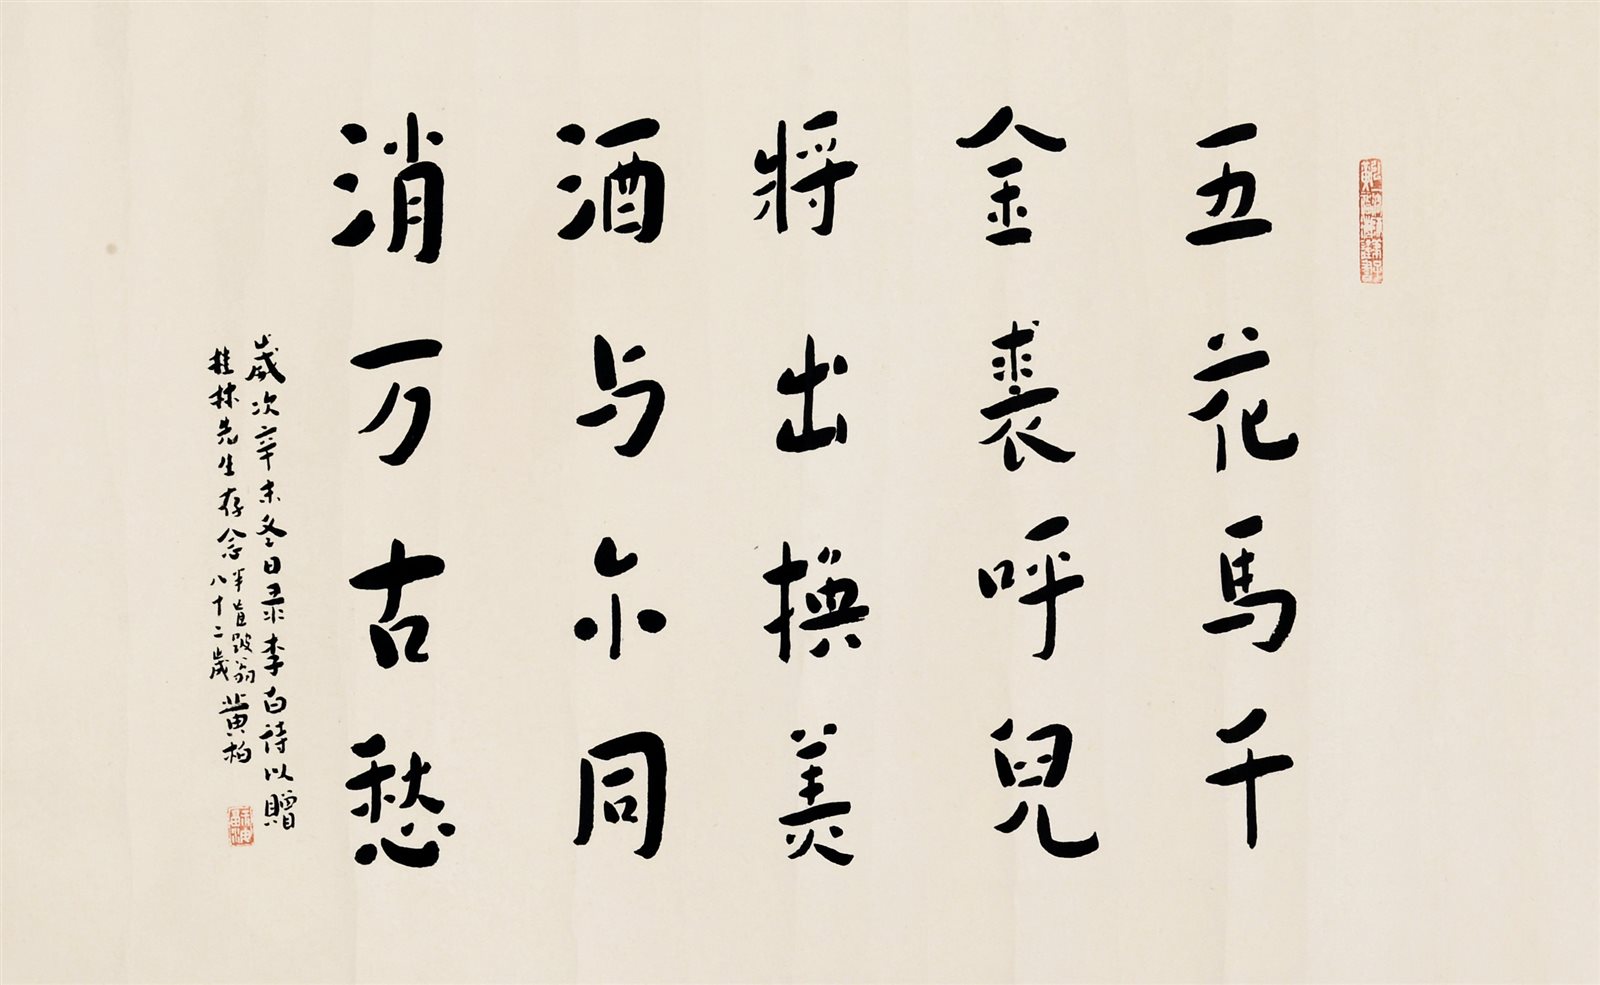 五花馬千
金裘呼兒
將出換美
酒与尔同
消万古愁
歲次辛未冬日录李白诗以贈
桂林先生存念
半盲跛翁
八十二歲
黄柏